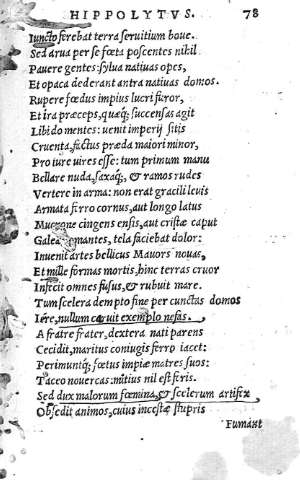 HIPPOLYTVS. 78
Iuncto ferebat terra seruitium boue.
Sed arua per se fœta poscentes nihil
Pauere gentes: sylua natiuas opes,
Et opaca dederant antra natiuas domos.
Rupere fœdus impius lucri furor,
Et ira præceps, quæq; succensas agit
Libido mentes: uenit imperij sitis
Cruenta, factus præda maiori minor,
Pro iure uires esse: tum primum manu
Bellare nuda, saxaq;, & ramos rudes
Vertere in arma: non erat gracili leuis
Armata ferro cornus, aut longo latus
Mucrone cingens ensis, aut cristæ caput
Galeæ comantes, tela faciebat dolor:
Inuenit artes bellicus Mauors nouas,
Et mille formas mortis, hinc terras cruor
Infecit omnes fusus, & rubuit mare.
Tum scelera dempto fine per cunctas domos
Iere, nullum caruit exemplo nefas.
A fratre frater, dextera nati parens
Cecidit, maritus coniugis ferro iacet:
Perimuntq; fœtus impiæ matres suos:
Taceo nouercas: mitius nil est feris.
Sed dux malorum fœmina, & scelerum artifex
Obsedit animos, cuius incestæ stupris
Fumant